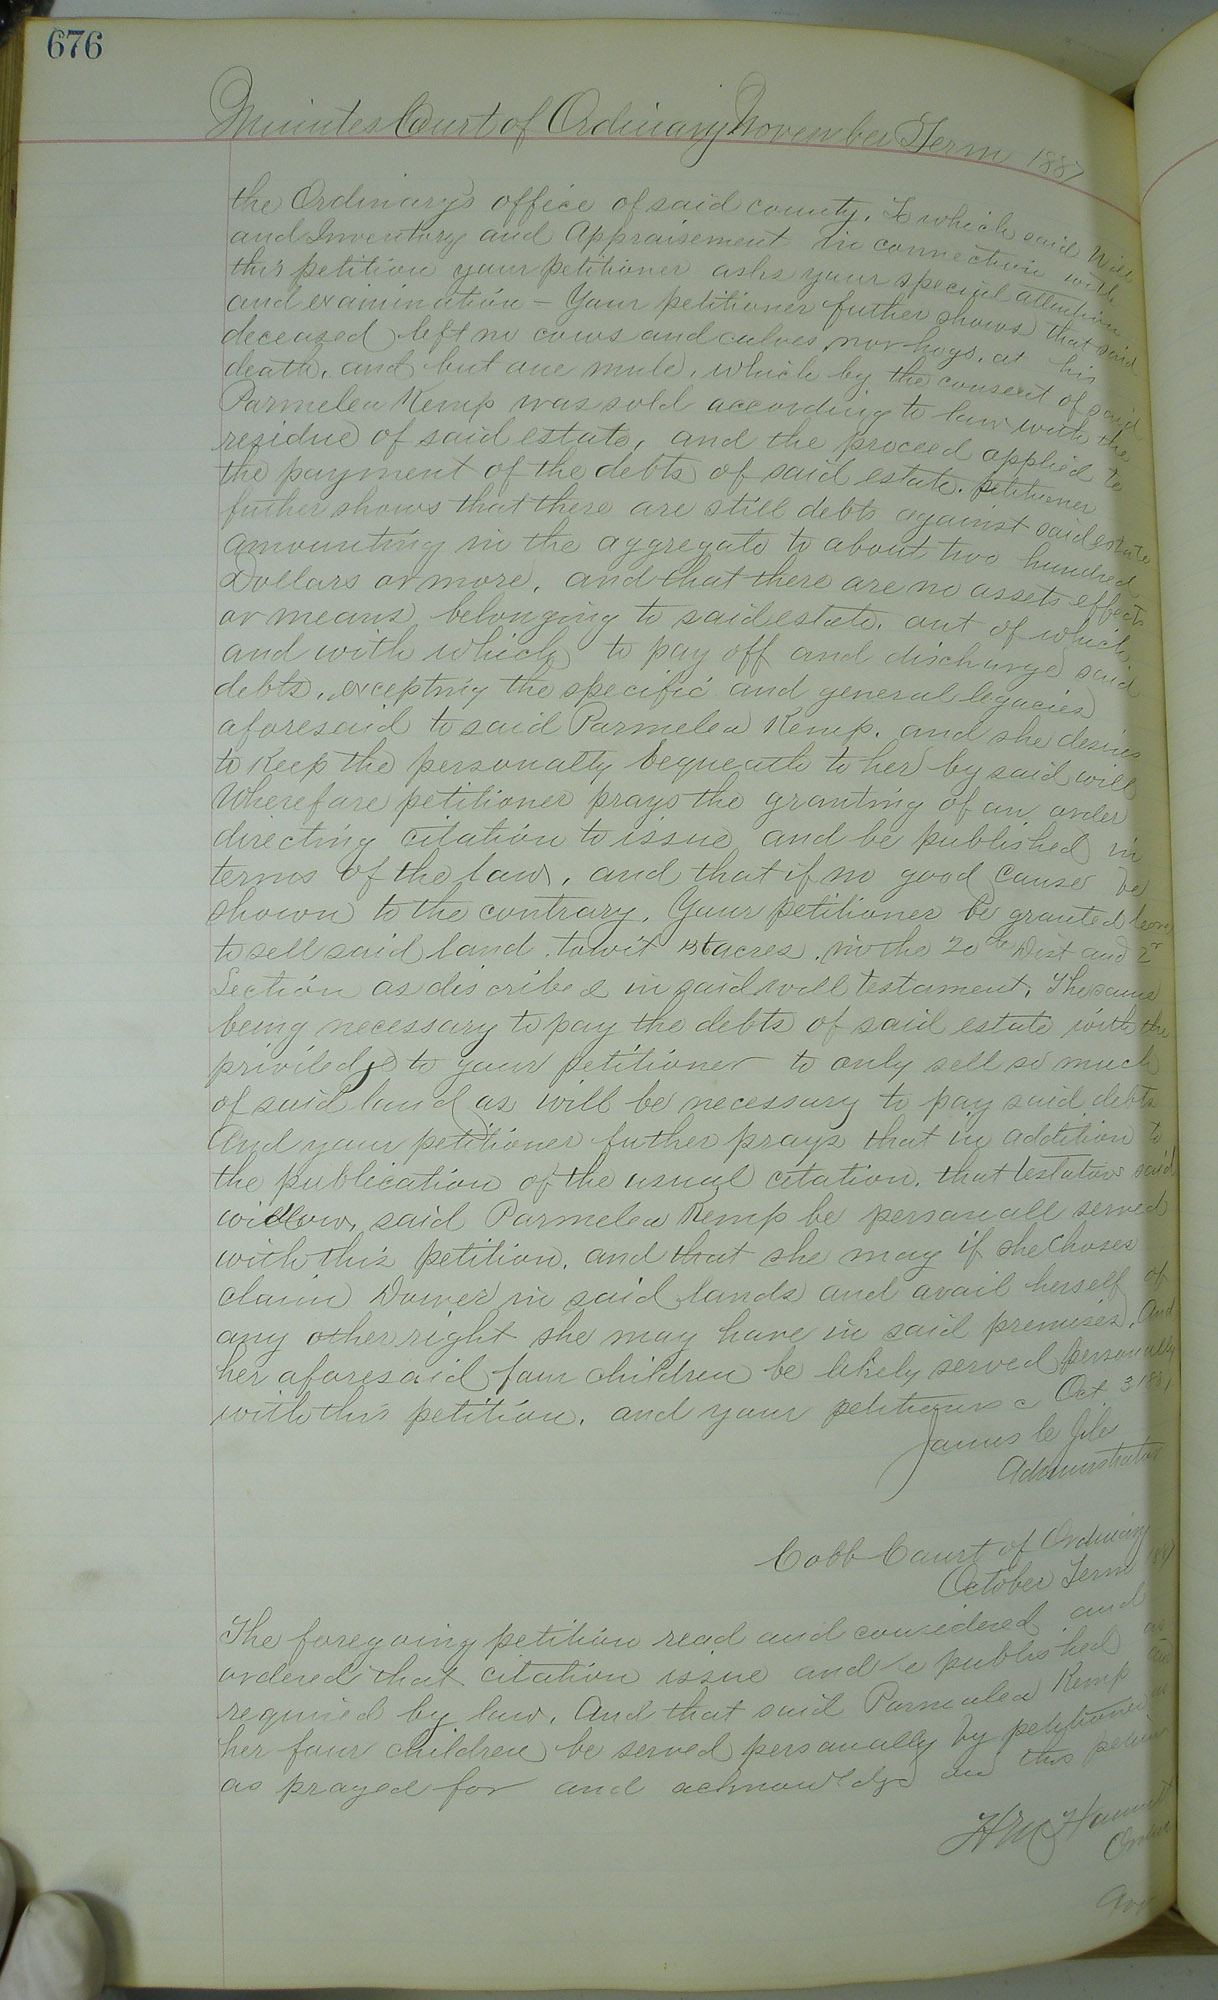 676
Minutes Court of Ordinary November Term 1887
the Ordinary's office of said county. To which said Will
and Inventory and Appraisement in connection with
this petition your petitioner asks your special attention
and examination - Your petitioner futher shows that said
deceased left no cows and calves, nor hogs, at his
death, and but one mule, which by the consent of said
Parmelea Kemp was sold according to law with the
residue of said estate, and the proceed applied to
the payment of the debts of said estate. petitioner
futher shows that there are still debts against said estate
amounting in the aggregate to about two hundred
Dollars or more, and that there are no assets effects
or means belonging to said estate, out of which
and with which to pay off and discharge said
debts, excepting the specific and general legacies
aforesaid to said Parmelea Kemp, and she desires
to keep the personalty bequeath to her by said will
Wherefore petitioner prays the granting of an order
directing citation to issue and be published in
terms of the law, and that if no good cause be
shown to the contrary, Your petitioner be granted leave
to sell said land towit acres, in the 20th Dist and 2nd
Section as discribed in said will testament, The same
being necessary to pay the debts of said estate with the
priviledge to your petitioner to only sell so much
of said land as will be necessary to pay said debts
And your petitioner futher prays that in addition to
the publication of the usual citation, that testators said
widow, said Parmelea Kemp be personall served
with this petition, and that she may if she choses
claim Dower in said lands and avail herself of
any other right she may have in said premises, And
her aforesaid four children be likely served personally
with this petition, and your petitioner Oct 3 1887
James C Giles
Administrator
Cobb Court of Ordinary
October Term 1887
The foregoing petition read and considered and
ordered that citation issue and be published as
required by law, And that said Parmelea Kemp and
her four children be served personally by petitioner
as prayed for and acknowledge on this petition
H M Hammett